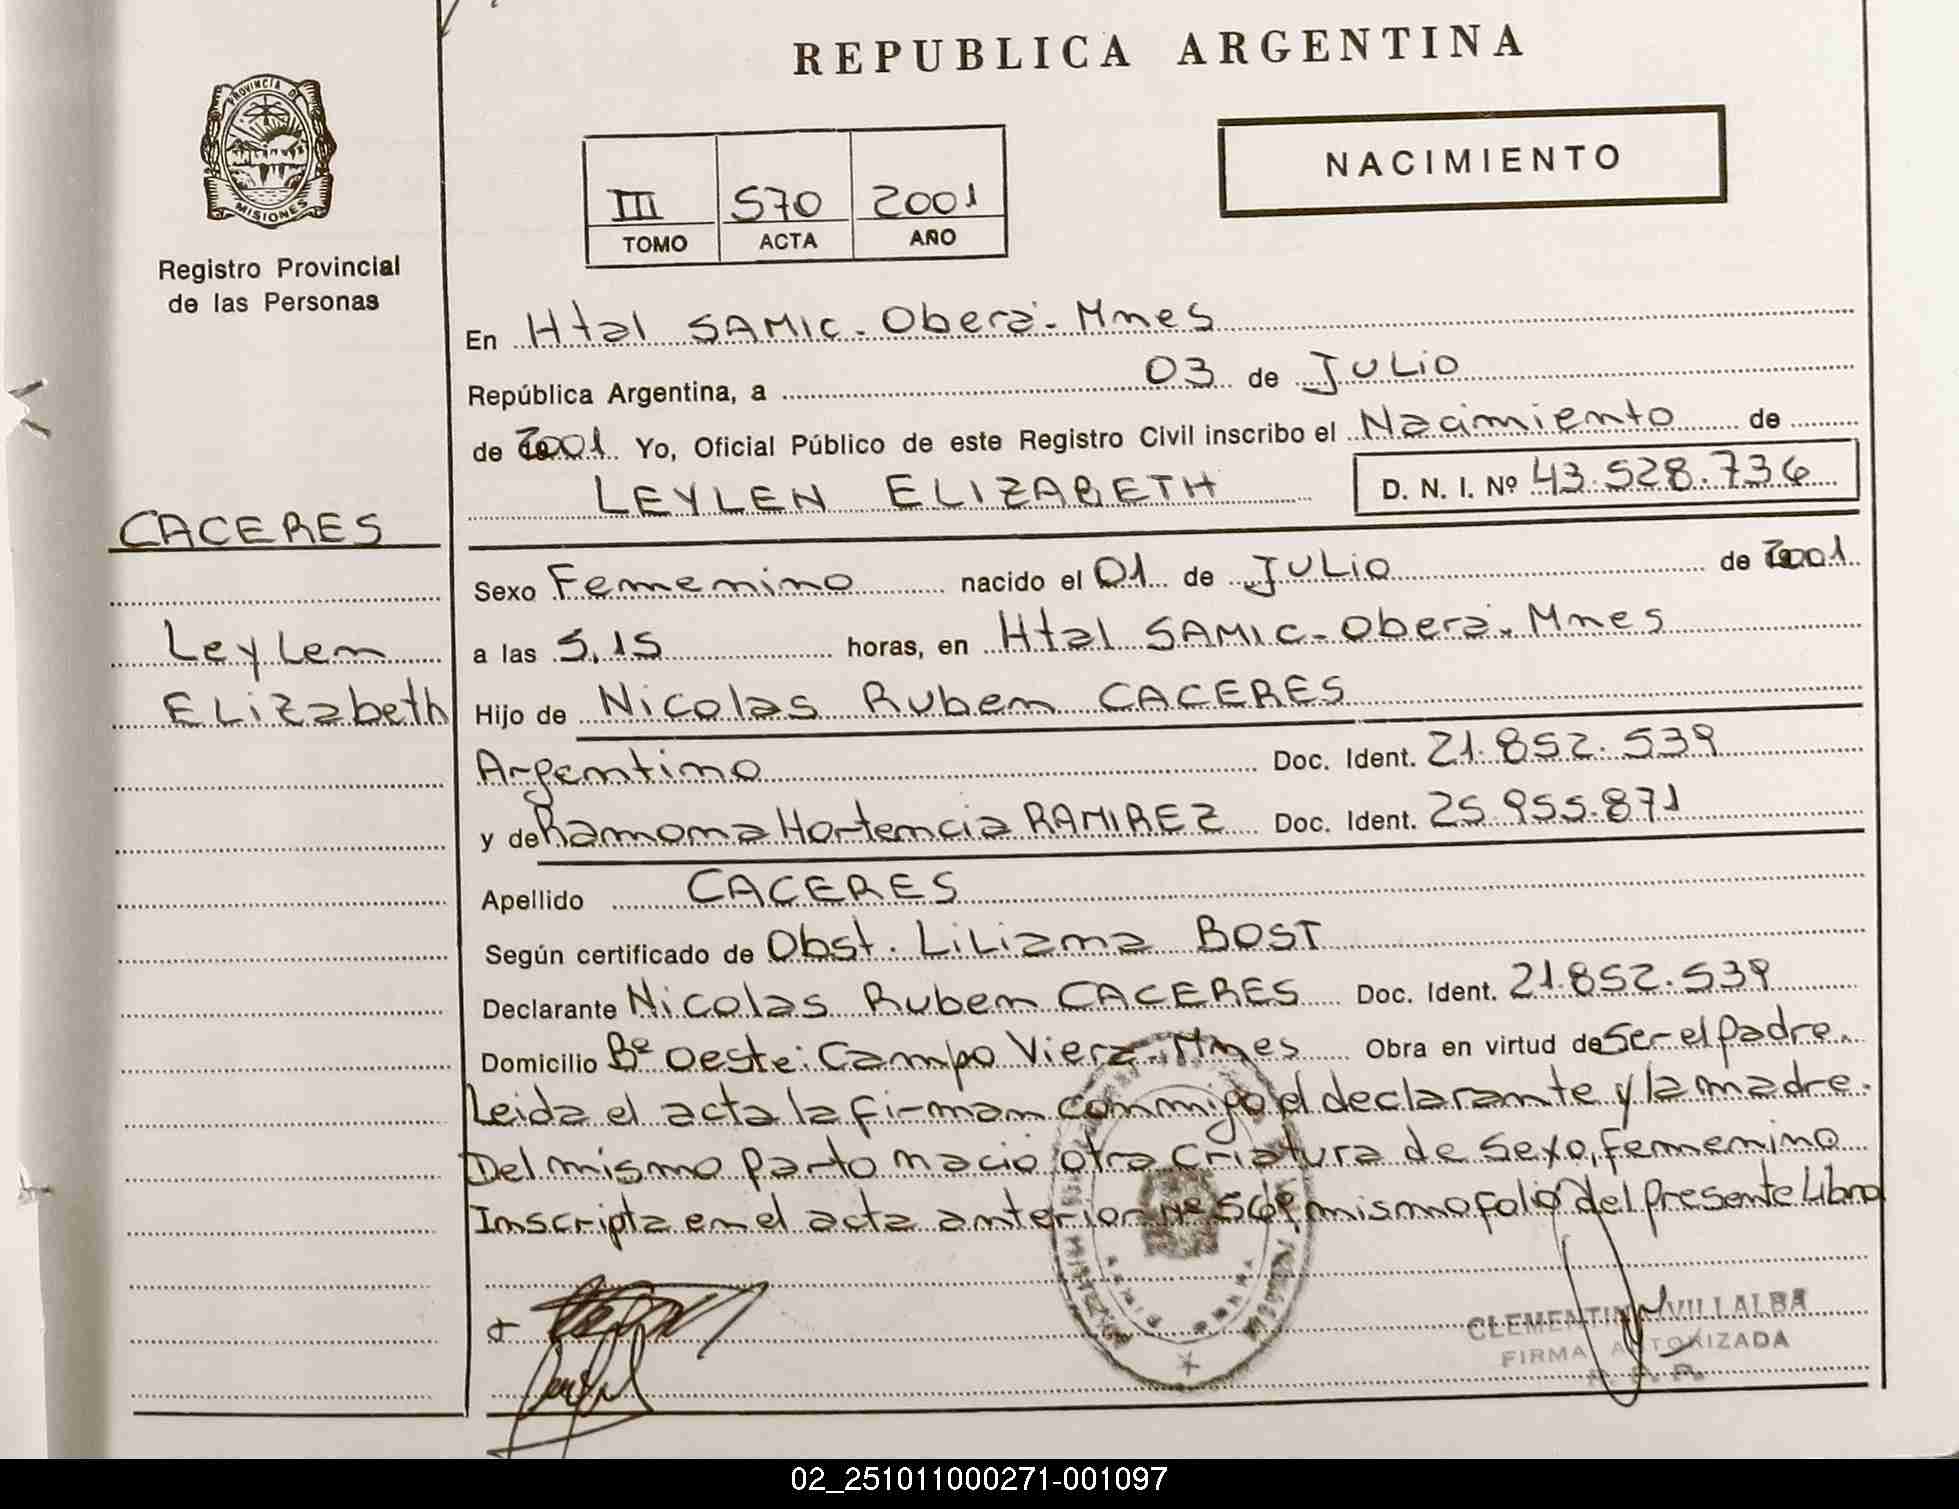 REPUBLICA ARGENTINA
PROVINCIA DE
MISIONES
Registro Provincial
de las Personas
NACIMIENTO
III 570 2001
TOMO ACTA AÑO
En Htal SAMIC - Oberá - Mnes
República Argentina, a 03 de JULIO
de 2001 Yo, Oficial Público de este Registro Civil inscribo el Nacimiento de
LEYLEN ELIZABETH D. N. I. Nº 43.528.736
CACERES
Leylen
ELizabeth
Sexo Femenino nacido el 01 de JULIO de 2001
a las 5,15 horas, en Htal SAMIC - Oberá. Mnes
Hijo de Nicolas Ruben CACERES
Argentino Doc. Ident. 21.852.539
y de Ramona Hortencia RAMIREZ Doc. Ident. 25.955.871
Apellido CACERES
Según certificado de Obst. Liliana BOST
Declarante Nicolas Ruben CACERES Doc. Ident. 21.852.539
Domicilio Bº Oeste. Campo Viera - Mnes Obra en virtud de Ser el Padre.
Leida el acta la firman conmigo el declarante y la madre.
Del mismo parto nacio otra criatura de sexo, femenino
Inscripta en el acta anterior Nº 569, mismo folio del presente Libro
CLEMENTINA VILLALBA
FIRMA AUTORIZADA
02_251011000271-001097